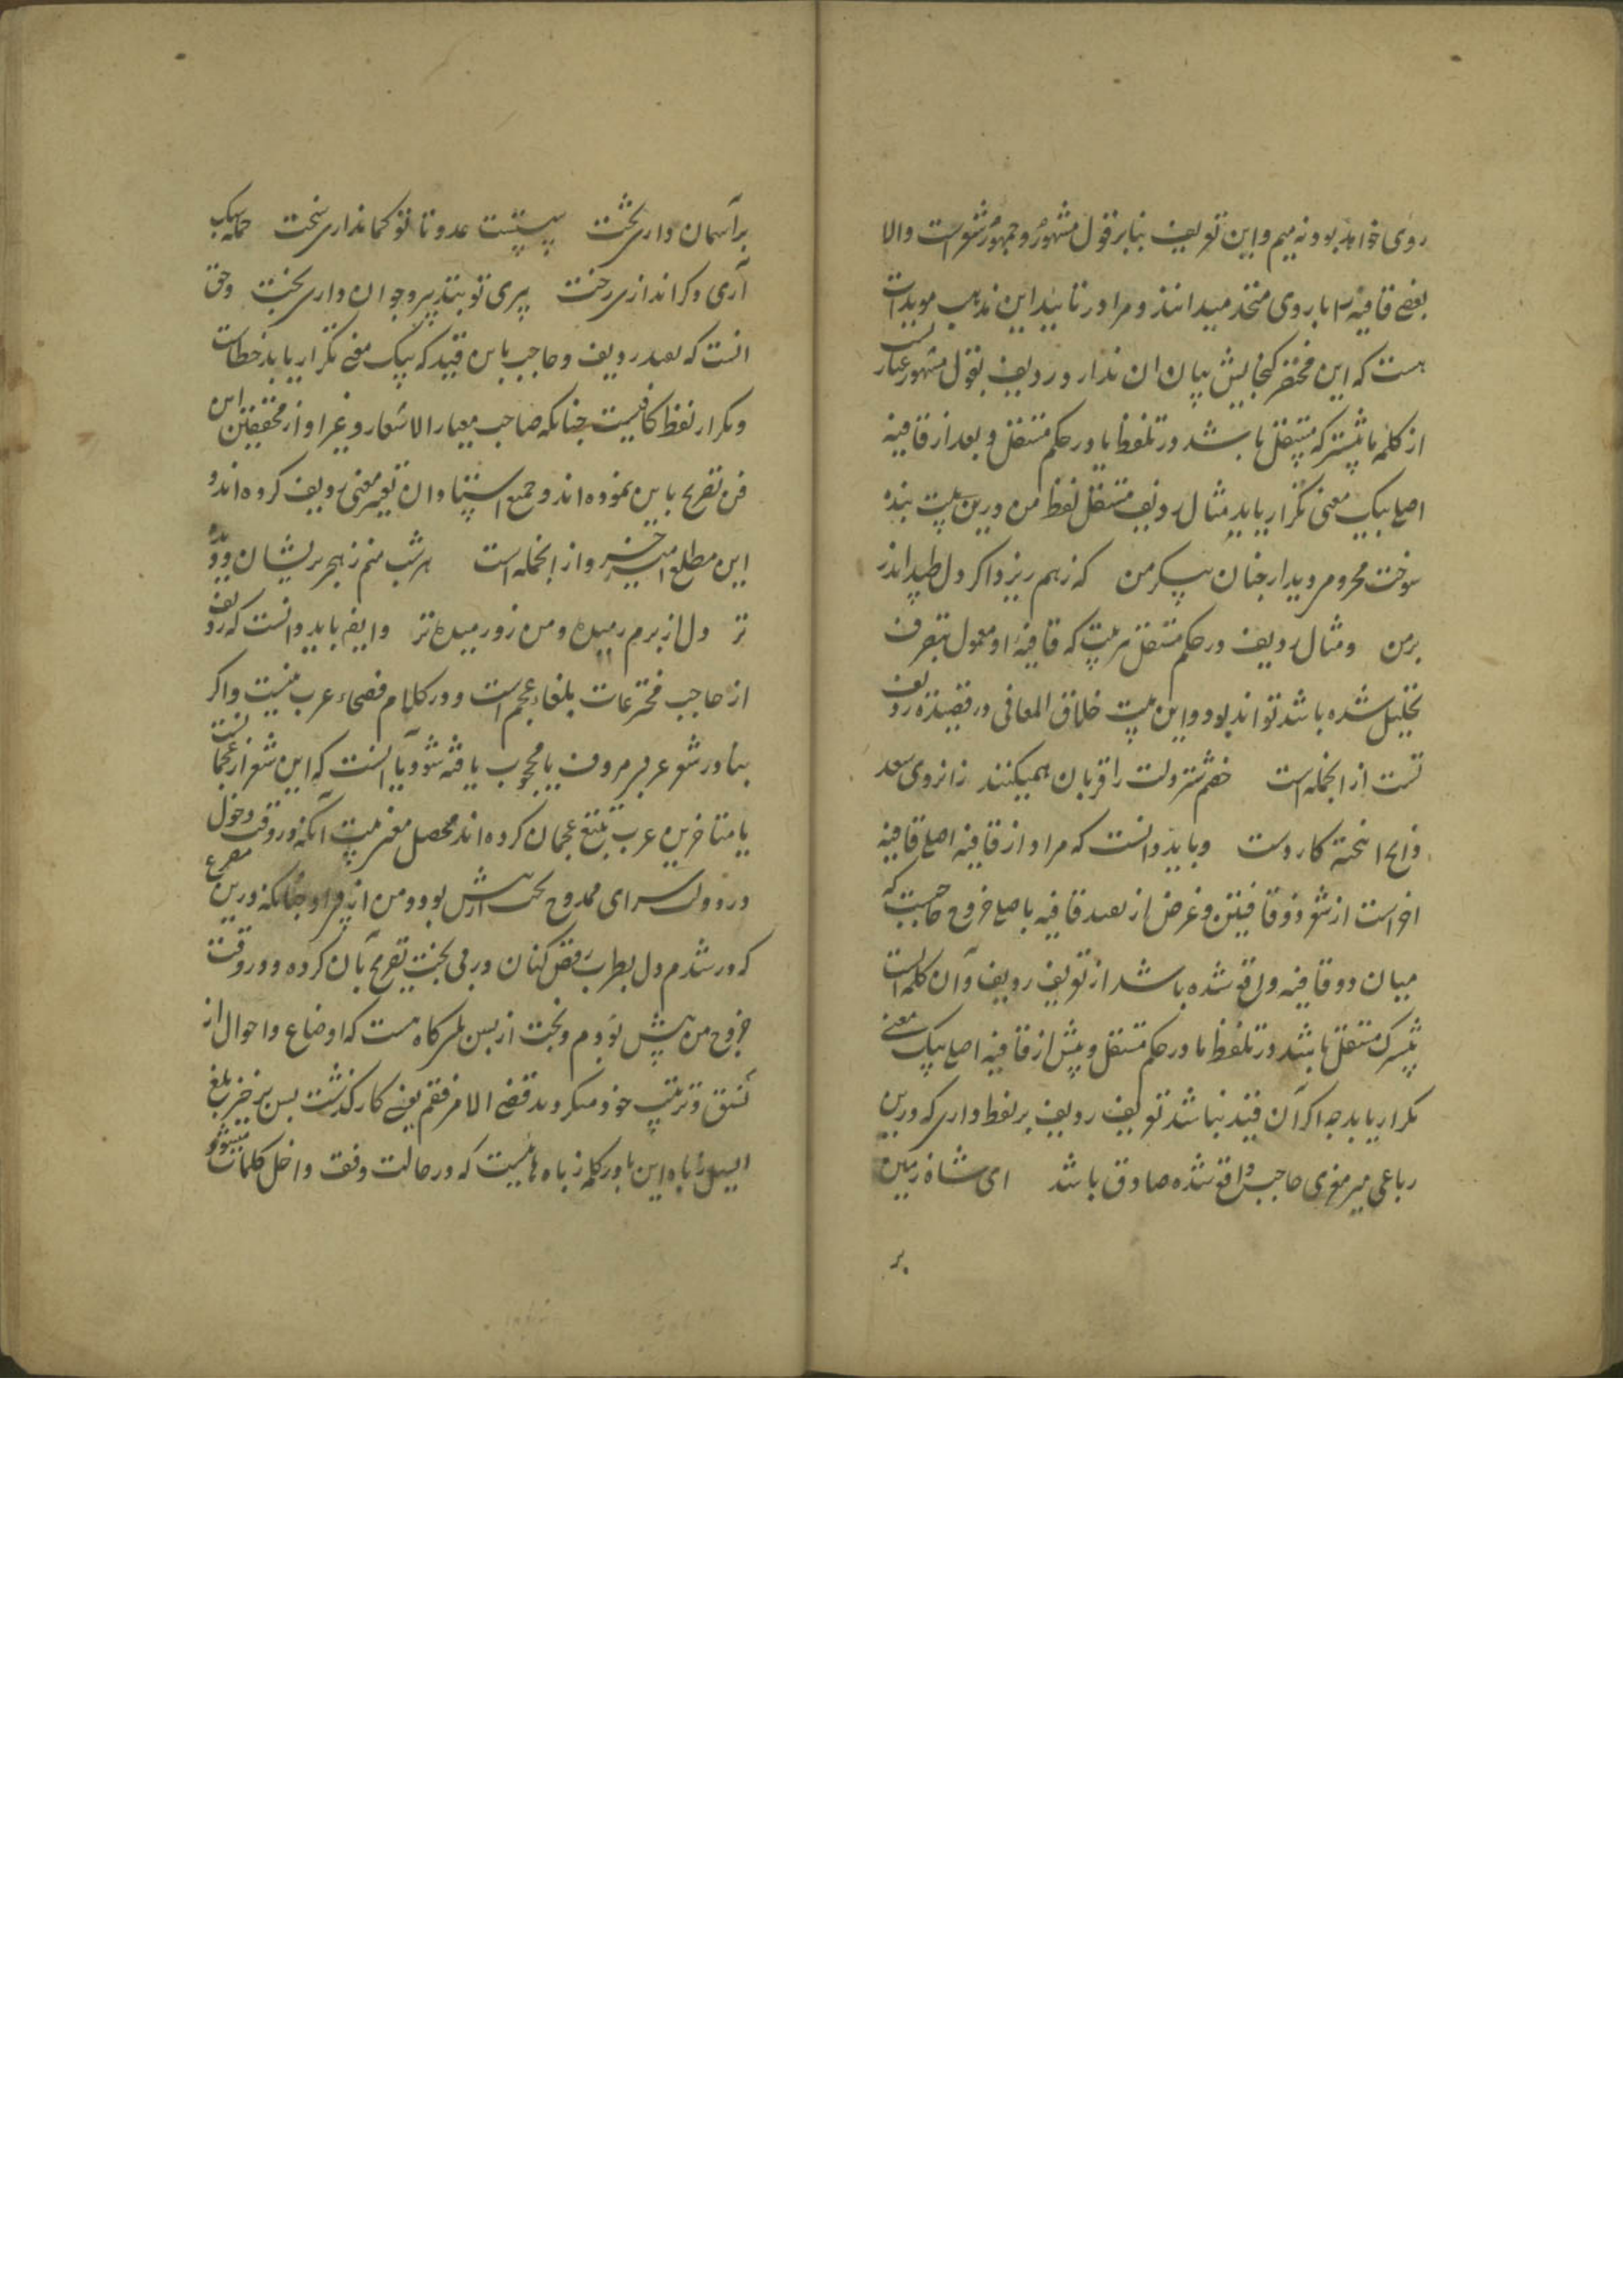 روی خواهد بود نه میم و این تعریف بنابر قول مشهور و جمهور شعراست والا
بعضی قافیه را با روی متحد میدانند و مرا در تایید این مذهب مویدات
هست که این مختصر گنجایش بیان ان ندارد و ردیف بقول مشهور عبارتست
از کلمه یا بیشتر که مستقل باشد در تلفظ یا در حکم مستقل و بعد از قافیه
اصلی بیک معنی تکرار یابد مثال ردیف مستقل لفظ من درین بیت بنده
سوخت محرومی دیدار چنان پیکر من که ز هم ریزد اگر دل طپد اندر
بر من و مثال ردیف در حکم مستقل هر بیت که قافیه او معمول بتصرف
تحلیل شده باشد تواند بود و این بیت خلاق المعانی در قصیده ردیف
تست از انجمله است خصم شتر دلت را قربان همیکنند زانروی سعد
ذابح اهخته کارد است و باید دانست که مراد از قافیه اصلی قافیه
اخر است از شعر ذو قافیتین و غرض از بعد قافیه باصلی خروج حاجبست که
میان دو قافیه واقع شده باشد از تعریف ردیف و آن کلمه ایست
بیشترک مستقل باشد در تلفظ یا در حکم مستقل و پیش از قافیه اصلی بیک معنی
تکرار یابد چه اگر آن قید نباشد تعریف ردیف بر لفظ داری که درین
رباعی میر معزی حاجب واقع شده صادق باشد ای شاه زمین
بر
بر آسمان داری تخت پستست عدو تا تو کمان داری سخت حمله سبک
آری و گران داری رخت پیری تو بتدبیر و جوان داری بخت و حق
انست که بعد ردیف و حاجب باین قید که بیک معنی تکرار یابد خطاست
و تکرار لفظ کافیست چنانکه صاحب معیار الاشعار و غیر او از محققین این
فن تصریح باین نموده اند و جمیع استادان تغیر معنی ردیف کرده اند و
این مطلع امیر خسرو از انجمله است هر شب منم ز هجر پریشان و دیده
تر دل از برم رمیده و من زو رمیده تر و ایضا باید دانست که ردیف
از حاجب مخترعات بلغاء عجم است و در کلام فصحاء عرب نیست و اگر
بنادر شعر عربی مردف یا محجوب یافته شود یا انست که این شعر از عجمانست
یا متاخرین عرب تتبع عجمان کرده اند محصل معنی بیت آنکه در وقت دخول
در دولت سرای ممدوح بخت پیش بود و من از پی او چنانکه درین مصرع
که در شدم دل بطرب رقص کنان در پی بخت تصریح بآن کرده و در وقت
خروج من پیش بودم و بخت از پس بلی گاه هست که اوضاع و احوال از
نسق و ترتیب خود میگردد قضی الامر فقم یعنی کار گذشت پس برخیز بلغ
السیل زباه و این یا در کلمه زباه هائیست که در حالت وقف داخل کلمات میشود